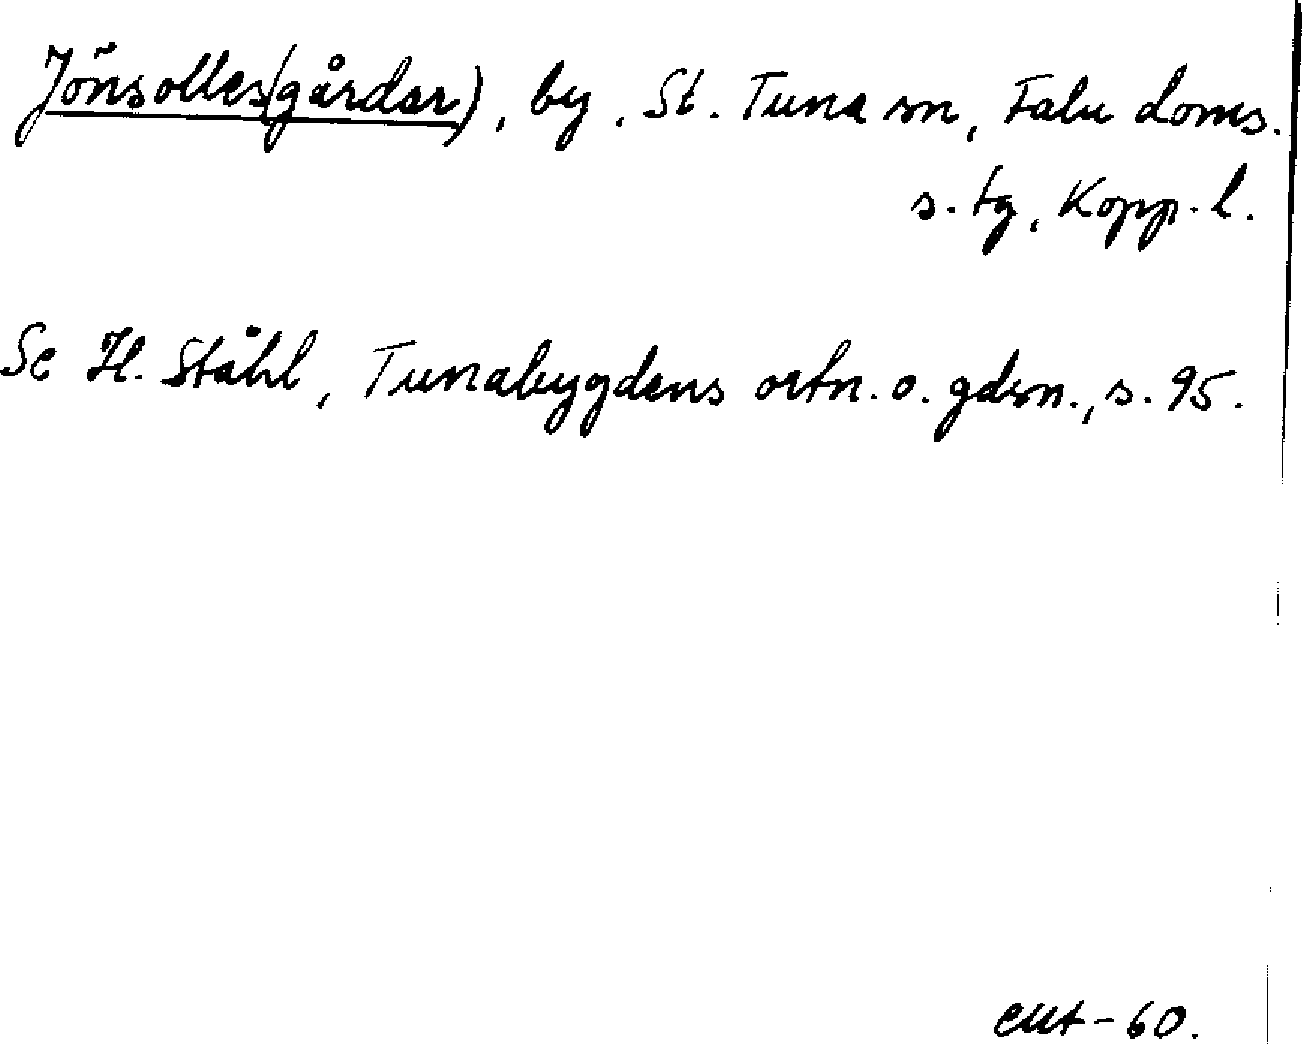 Jönsolles(gårdar), by, St. Tuna sn, Falu doms.
s. tg, Kopp. l.
Se H. Ståhl, Tunabygdens ortn. o. gdsn., s. 95.
-60.